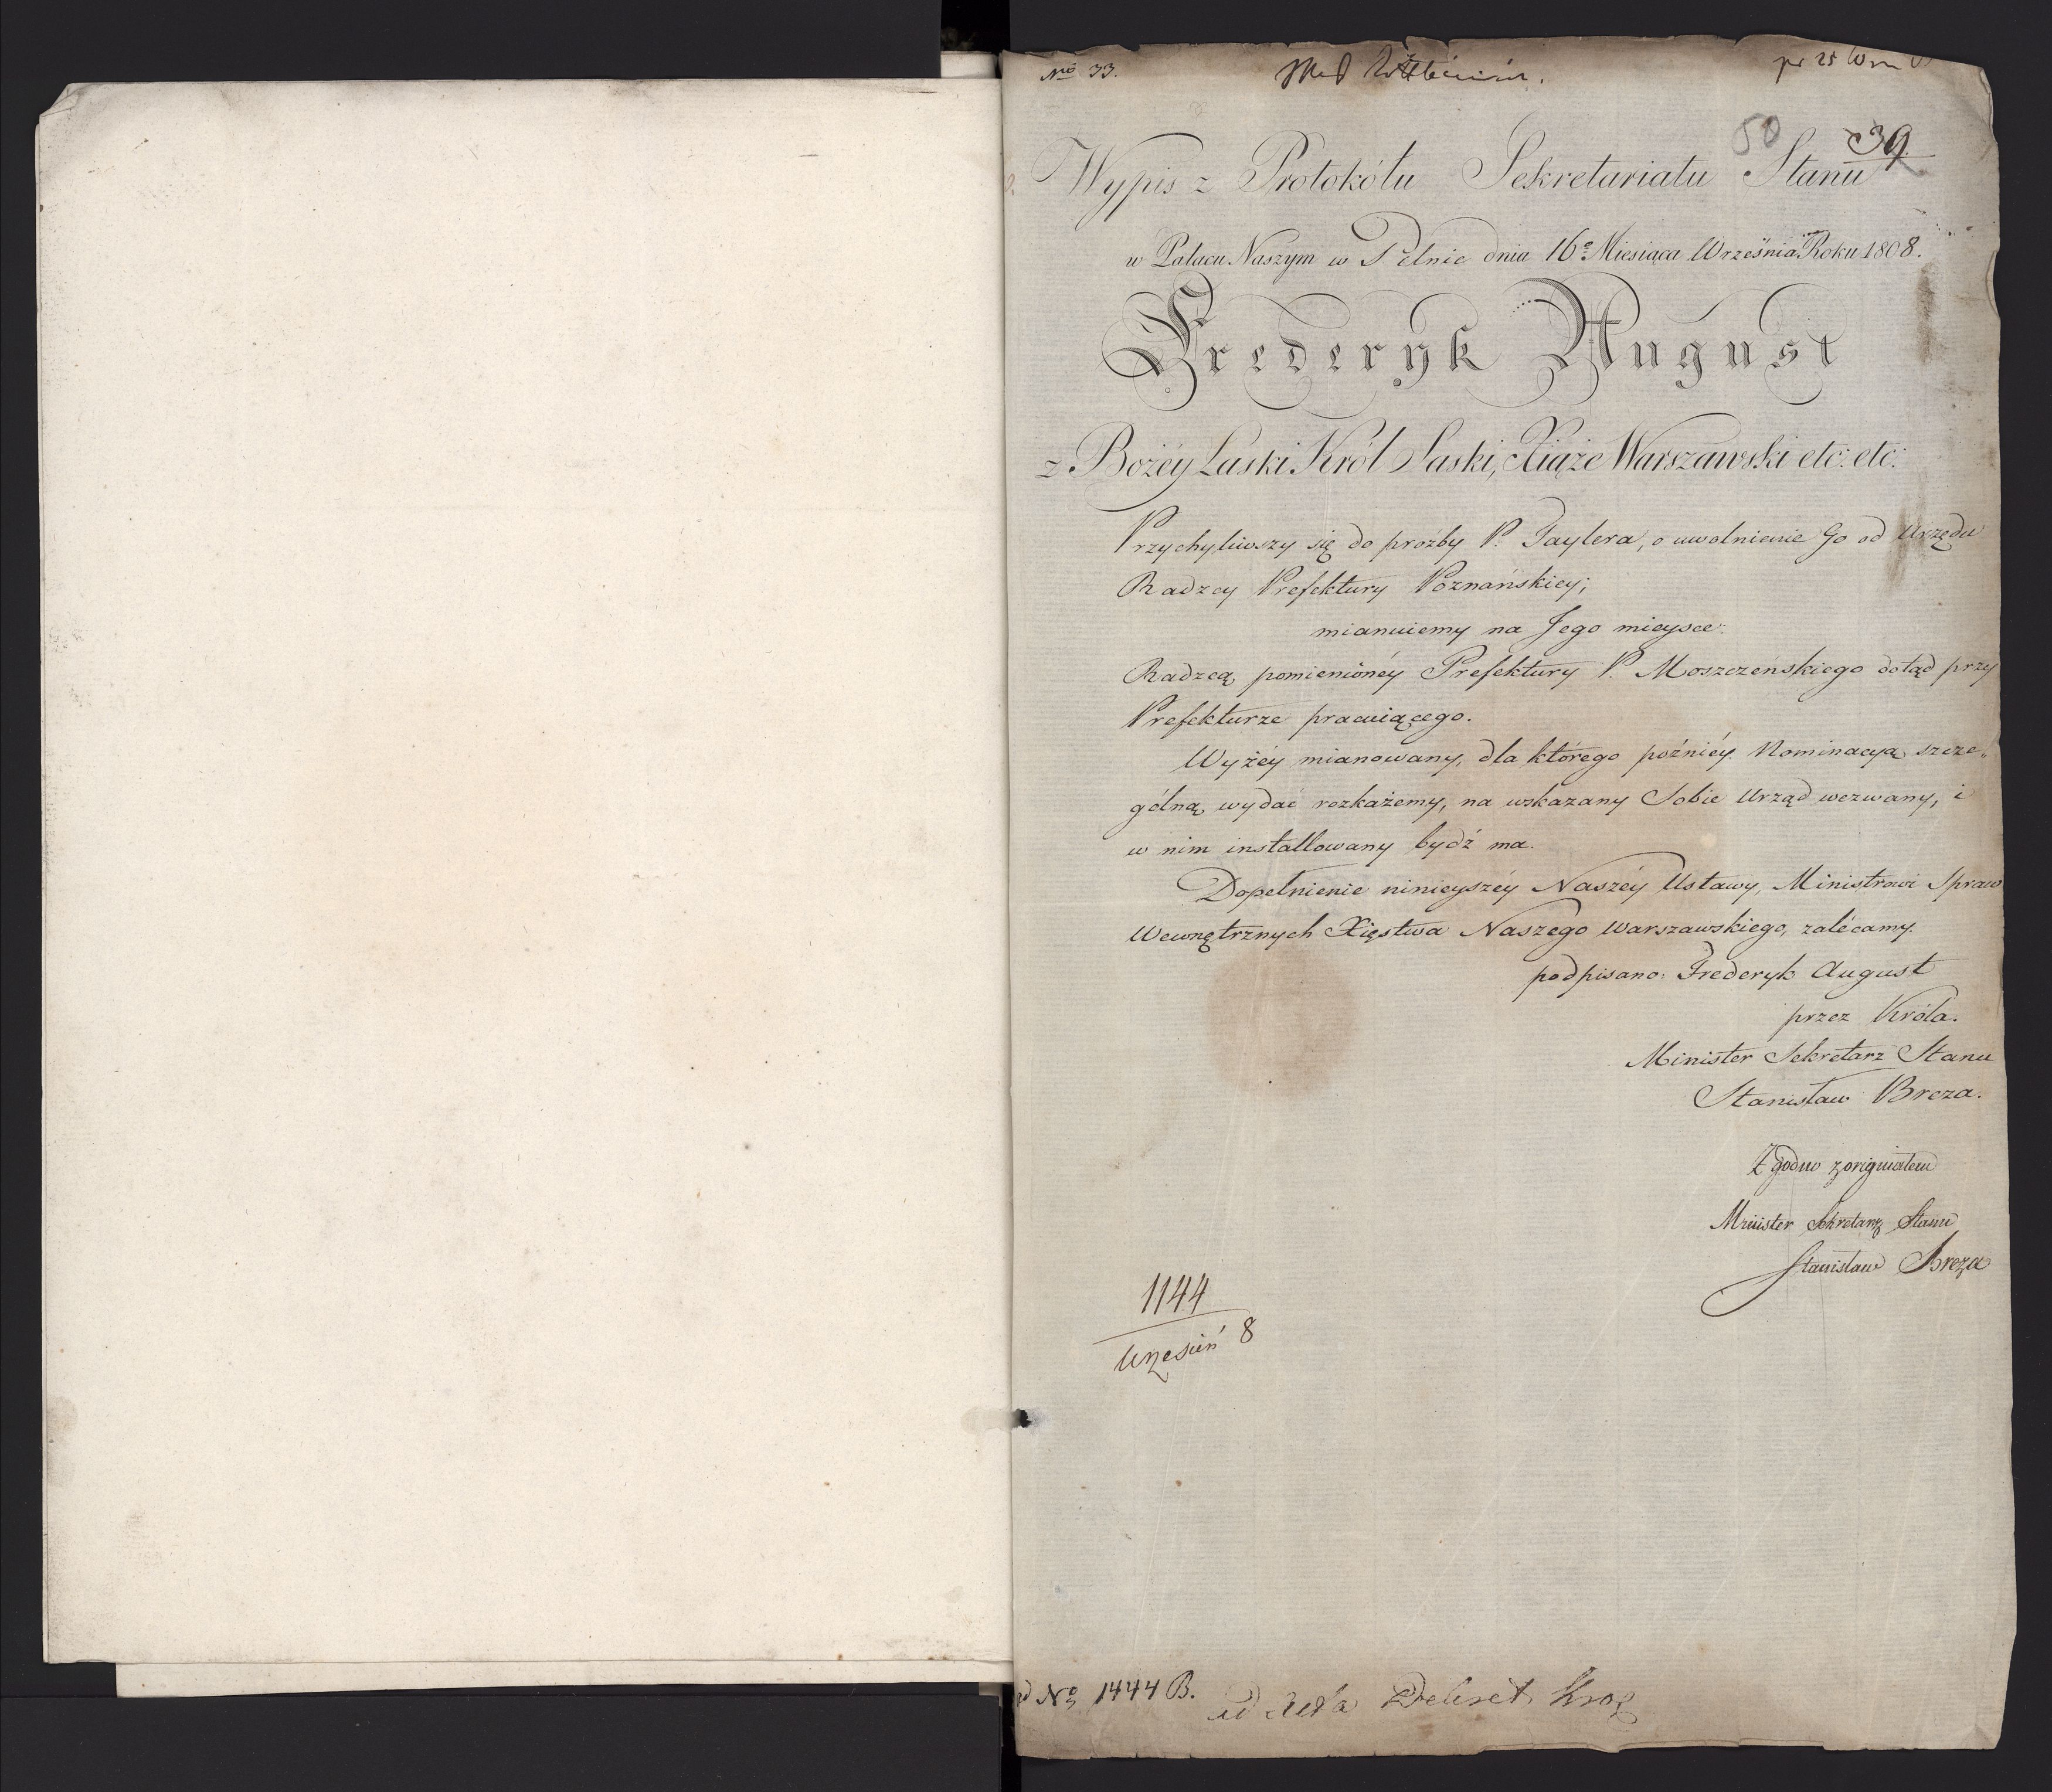 No 33.
pr 25
50 39
Wypis z Protokółu Sekretariatu Stanu
w Pałacu Naszym w Pelnic dnia 16o Miesiąca Września Roku 1808.
Frederyk August
z Bożéy Łaski Król Saski, Xiąże Warszawski etc: etc:
Przychyliwszy się do prozby P. Taylera, o uwolnienie Go od Urzędu
Radzcy Prefektury Poznańskiey;
mianuiemy na Jego mieysce:
Radzcą pomienionéy Prefektury P. Moszczeńskiego dotąd przy
Prefekturze pracuiącego.
Wyżéy mianowany, dla którego poźniéy Nominacyą szcze„
gólną wydać rozkażemy, na wskazany Sobie Urząd wezwany, i
w nim installowany bydź ma.
Dopełnienie ninieyszéy Naszéy Ustawy, Ministrowi Spraw
Wewnętrznych Xięstwa Naszego Warszawskiego, zalécamy.
podpisano: Frederyk August
przez Króla.
Minister Sekretarz Stanu
Stanisław Breza.
Zgodno z originałem
Minister Sekretarz Stanu
Stanisław Breza
1144
Wrzesień 8
No 1444 B.
ad Acta Dekret